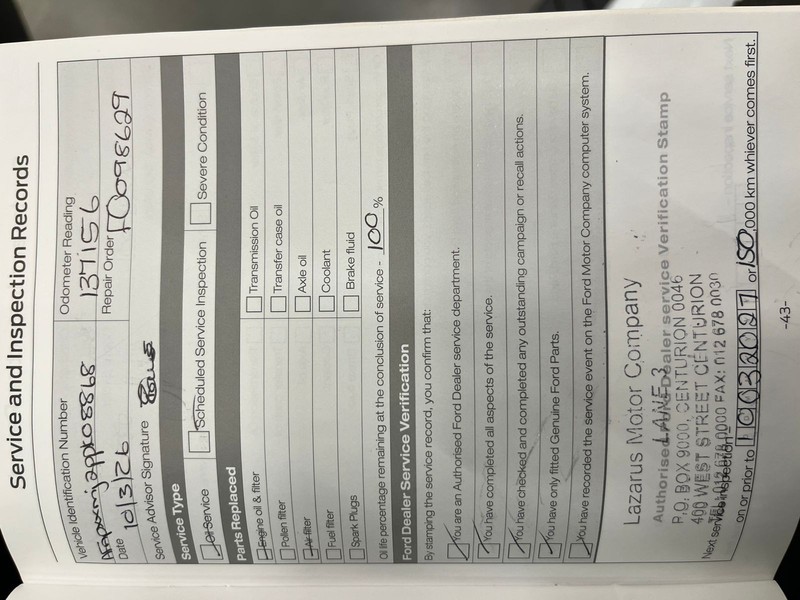 Service and Inspection Records
Vehicle Identification Number
Odometer Reading
137156
Date
10/3/26
Repair Order
FC098629
Service Advisor Signature
Service Type
Oil Service
Scheduled Service Inspection
Severe Condition
Parts Replaced
Engine oil & filter
Transmission Oil
Pollen filter
Transfer case oil
Air filter
Axle oil
Fuel filter
Coolant
Spark Plugs
Brake fluid
Oil life percentage remaining at the conclusion of service - 100 %
Ford Dealer Service Verification
By stamping the service record, you confirm that:
You are an Authorised Ford Dealer service department.
You have completed all aspects of the service.
You have checked and completed any outstanding campaign or recall actions.
You have only fitted Genuine Ford Parts.
You have recorded the service event on the Ford Motor Company computer system.
Lazarus Motor Company
LANE 3
Authorised Ford Dealer service Verification Stamp
P.O. BOX 9000, CENTURION 0046
400 WEST STREET CENTURION
TEL: 012 678 0000 FAX: 012 678 0030
Next service inspection -
on or prior to 10032027 or 150,000 km whiever comes first.
-43-